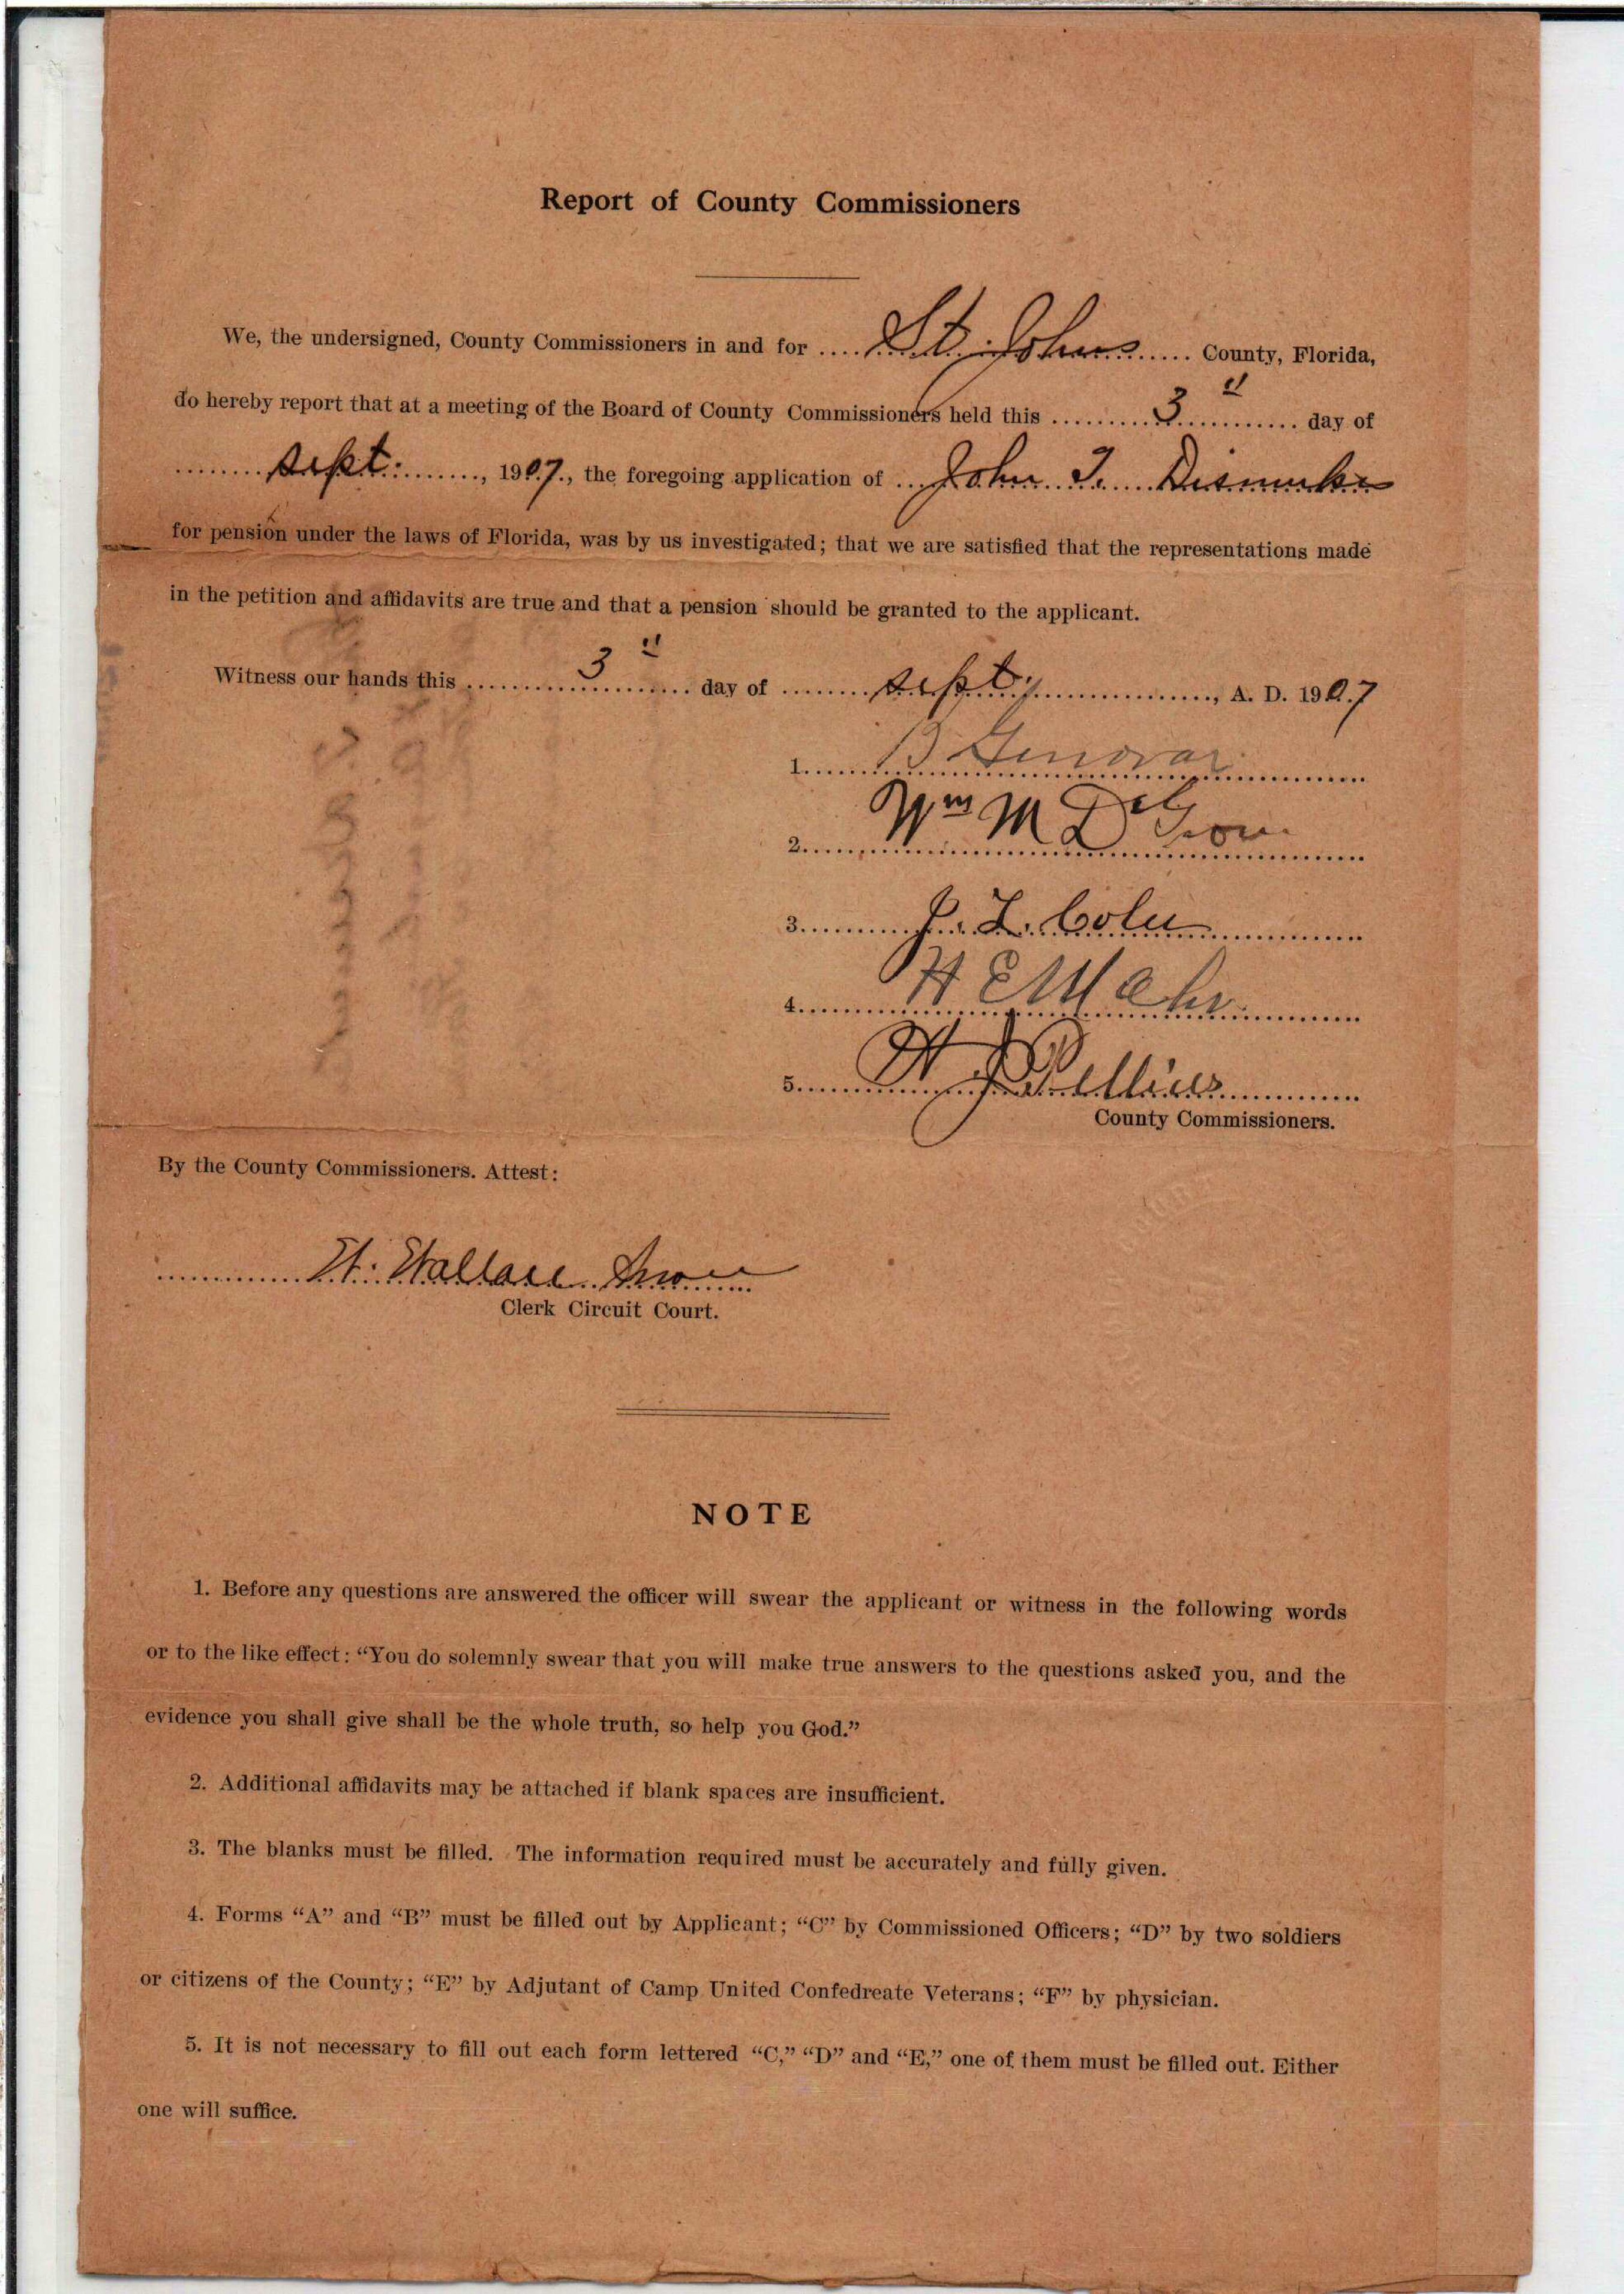 Report of County Commissioners
We, the undersigned, County Commissioners in and for .... St. Johns ..... County, Florida,
do hereby report that at a meeting of the Board of County Commissioners held this ......... 3" ......... day of
........ Sept. ........, 1907., the foregoing application of ... John T. Dismuke
for pension under the laws of Florida, was by us investigated; that we are satisfied that the representations made
in the petition and affidavits are true and that a pension should be granted to the applicant.
Witness our hands this ........ 3" ........ day of ........ Sept. ........, A. D. 190.7
1. B Genovar
2. Wm M
3.
4. H E
5. W J
County Commissioners.
By the County Commissioners. Attest:
Wallace Snow
Clerk Circuit Court.
NOTE
1. Before any questions are answered the officer will swear the applicant or witness in the following words
or to the like effect: “You do solemnly swear that you will make true answers to the questions asked you, and the
evidence you shall give shall be the whole truth, so help you God.”
2. Additional affidavits may be attached if blank spaces are insufficient.
3. The blanks must be filled. The information required must be accurately and fully given.
4. Forms “A” and “B” must be filled out by Applicant; “C” by Commissioned Officers; “D” by two soldiers
or citizens of the County; “E” by Adjutant of Camp United Confedreate Veterans; “F” by physician.
5. It is not necessary to fill out each form lettered “C,” “D” and “E,” one of them must be filled out. Either
one will suffice.